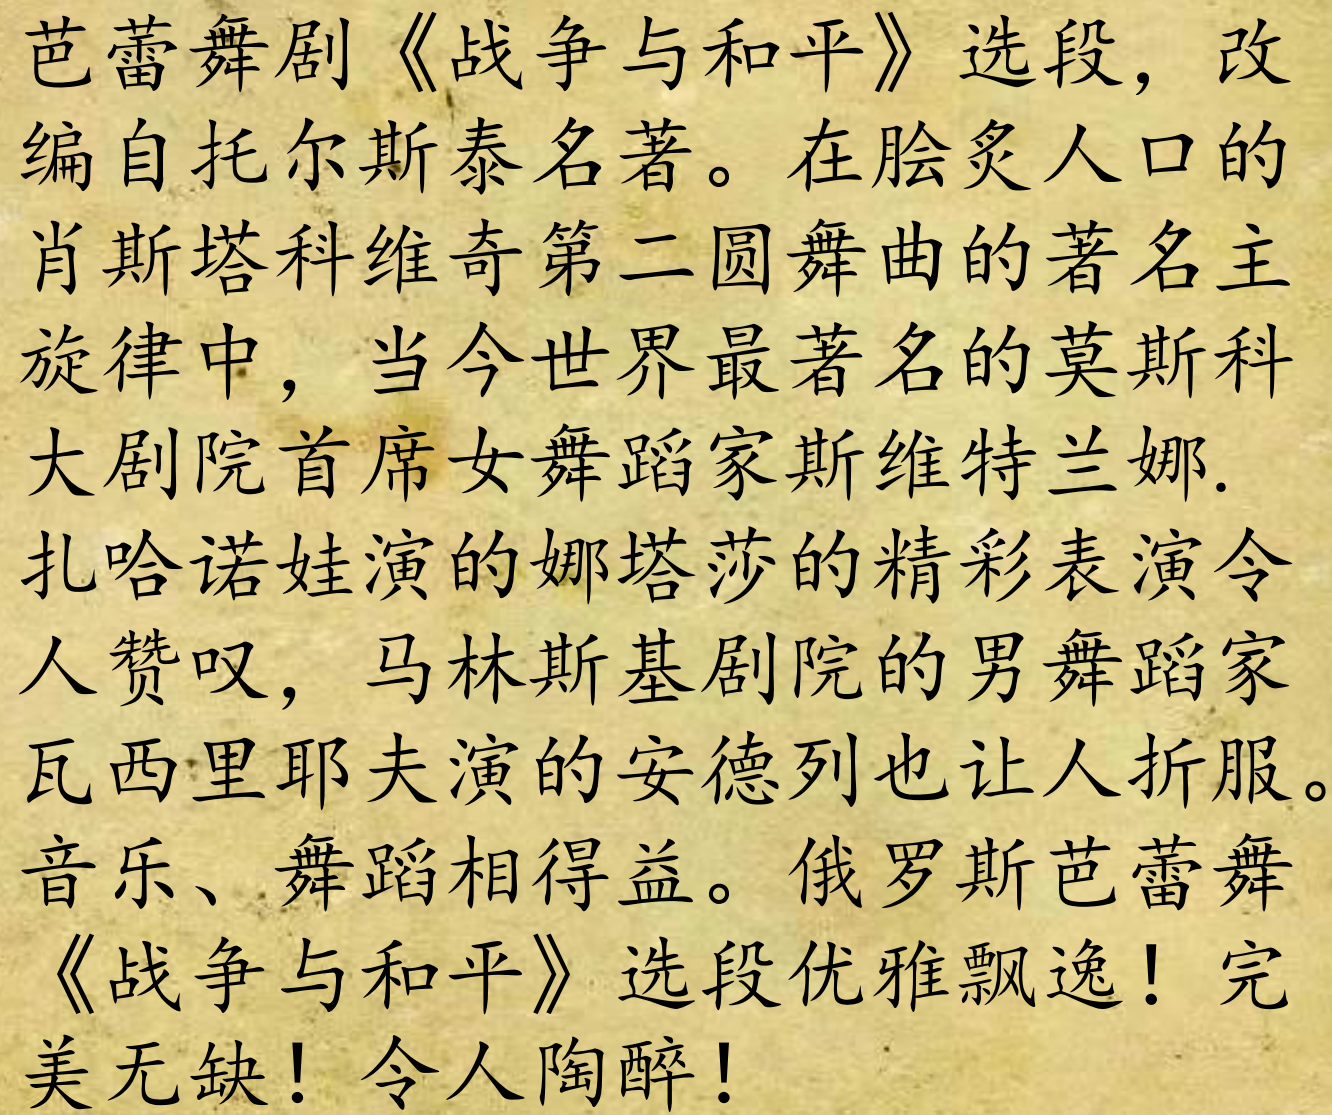 芭蕾舞剧《战争与和平》选段，改
编自托尔斯泰名著。在脍炙人口的
肖斯塔科维奇第二圆舞曲的著名主
旋律中，当今世界最著名的莫斯科
大剧院首席女舞蹈家斯维特兰娜.
扎哈诺娃演的娜塔莎的精彩表演令
人赞叹，马林斯基剧院的男舞蹈家
瓦西里耶夫演的安德列也让人折服。
音乐、舞蹈相得益。俄罗斯芭蕾舞
《战争与和平》选段优雅飘逸！完
美无缺！令人陶醉！